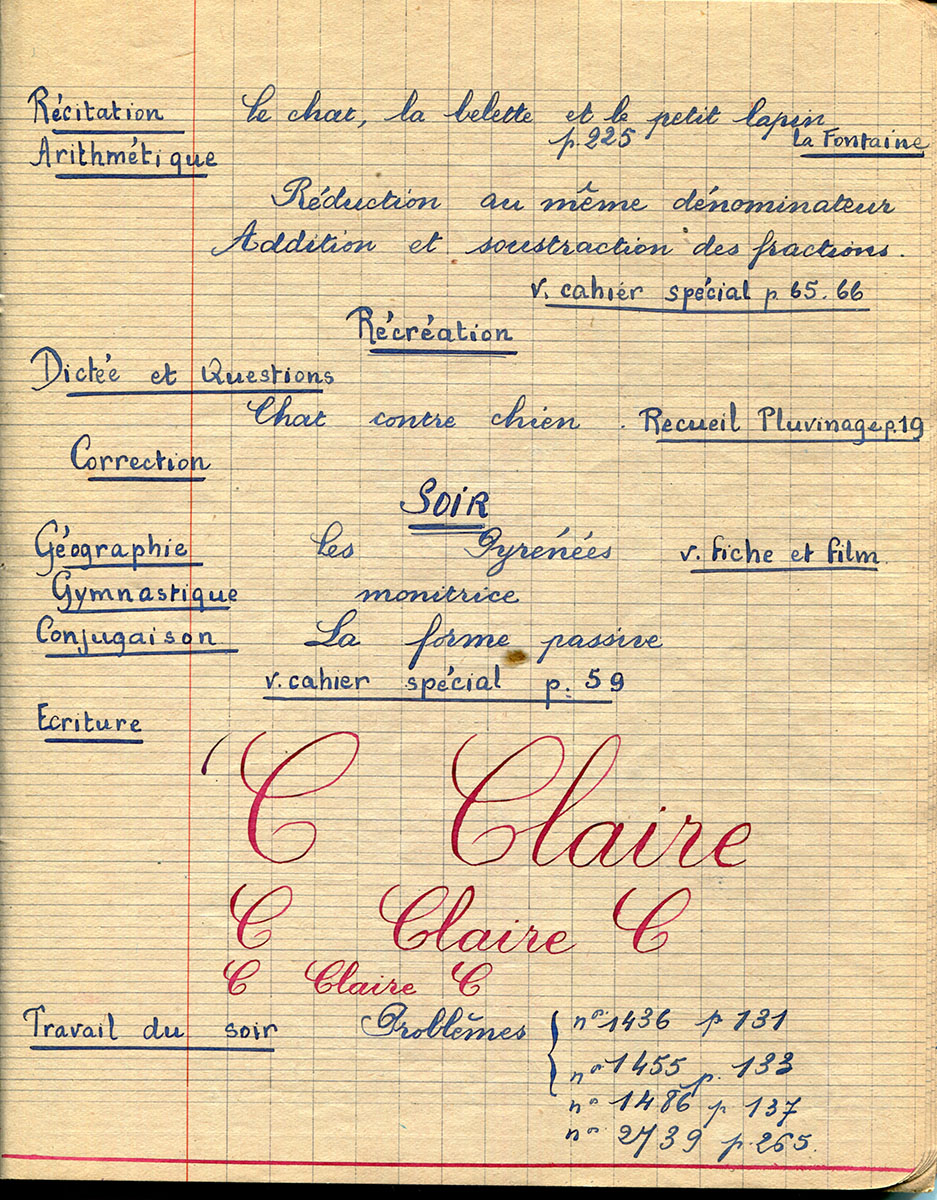 Récitation Le chat, la belette et le petit lapin
p. 225 La Fontaine
Arithmétique
Réduction au même dénominateur
Addition et soustraction des fractions.
v. cahier spécial p 65. 66
Récréation
Dictée et Questions
Chat contre chien. Recueil Pluvinage p.19
Correction
SOIR
Géographie Les Pyrénées v. fiche et film
Gymnastique monitrice
Conjugaison La forme passive
v. cahier spécial p. 59
Ecriture
C Claire
C Claire C
C Claire C
Travail du soir Problèmes { n° 1436 p 131
n° 1455 p. 133
n° 1486 p 137
n° 2739 p. 265.